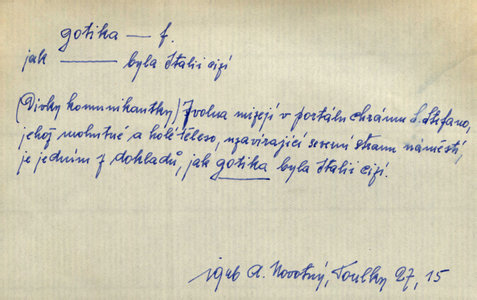 gotika — f.
jak ——— byla Italii cizí
(Dívky komunikantky) Zvolna mizejí v portálu chrámu S. Stefano,
jehož mohutné a holé těleso, uzavírající severní stranu náměstí,
je jedním z dokladů, jak gotika byla Italii cizí.
A. Novotný, Toulky 27, 15